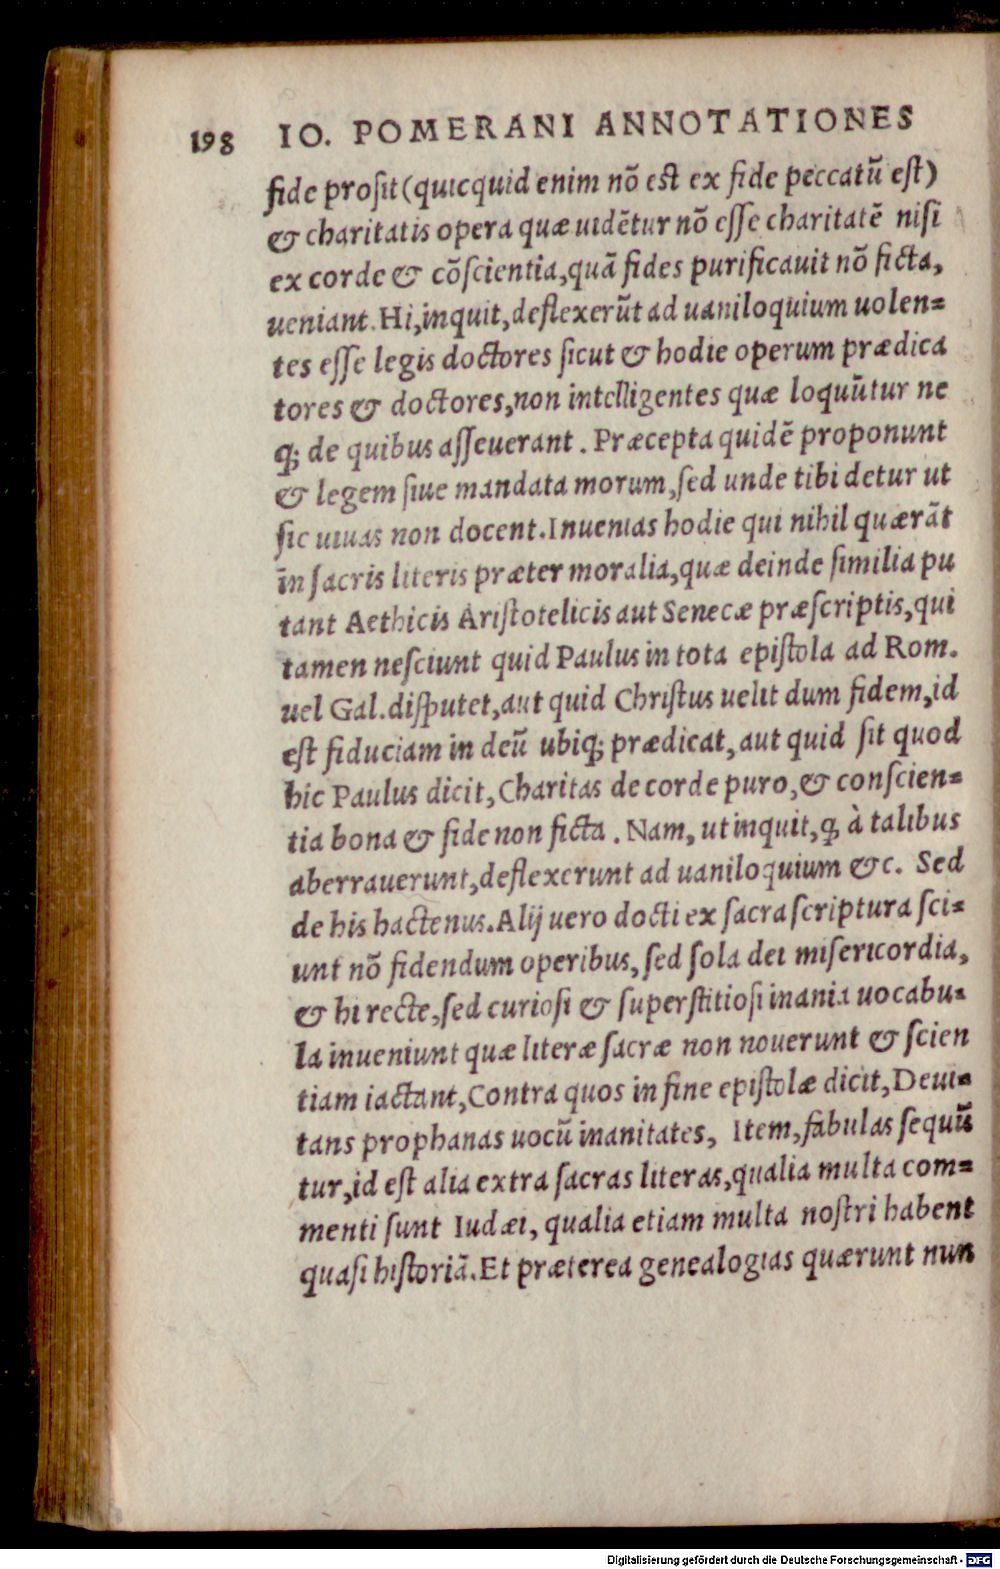 198 IO. POMERANI ANNOTATIONES
fide prosit (quicquid enim nõ est ex fide peccatũ est)
& charitatis opera quæ uidẽtur nõ esse charitatẽ nisi
ex corde & cõscientia, quã fides purificauit nõ ficta,
ueniant. Hi, inquit, deflexerũt ad uaniloquium uolen=
tes esse legis doctores sicut & hodie operum prædica
tores & doctores, non intelligentes quæ loquũtur ne
q; de quibus asseuerant. Præcepta quidẽ proponunt
& legem siue mandata morum, sed unde tibi detur ut
sic uiuas non docent. Inuenias hodie qui nihil quærãt
in sacris literis præter moralia, quæ deinde similia pu
tant Aethicis Aristotelicis aut Senecæ præscriptis, qui
tamen nesciunt quid Paulus in tota epistola ad Rom.
uel Gal. disputet, aut quid Christus uelit dum fidem, id
est fiduciam in deũ ubiq; prædicat, aut quid sit quod
hic Paulus dicit, Charitas de corde puro, & conscien=
tia bona & fide non ficta. Nam, ut inquit, q, à talibus
aberrauerunt, deflexerunt ad uaniloquium &c. Sed
de his hactenus. Alij uero docti ex sacra scriptura sci=
unt nõ fidendum operibus, sed sola dei misericordia,
& hi recte, sed curiosi & superstitiosi inania uocabu=
la inueniunt quæ literæ sacræ non nouerunt & scien
tiam iactant, Contra quos in fine epistolæ dicit, Deui=
tans prophanas uocũ inanitates, Item, fabulas sequũ
tur, id est alia extra sacras literas, qualia multa com=
menti sunt Iudæi, qualia etiam multa nostri habent
quasi historiã. Et præterea genealogias quærunt nun
Digitalisierung gefördert durch die Deutsche Forschungsgemeinschaft - DFG